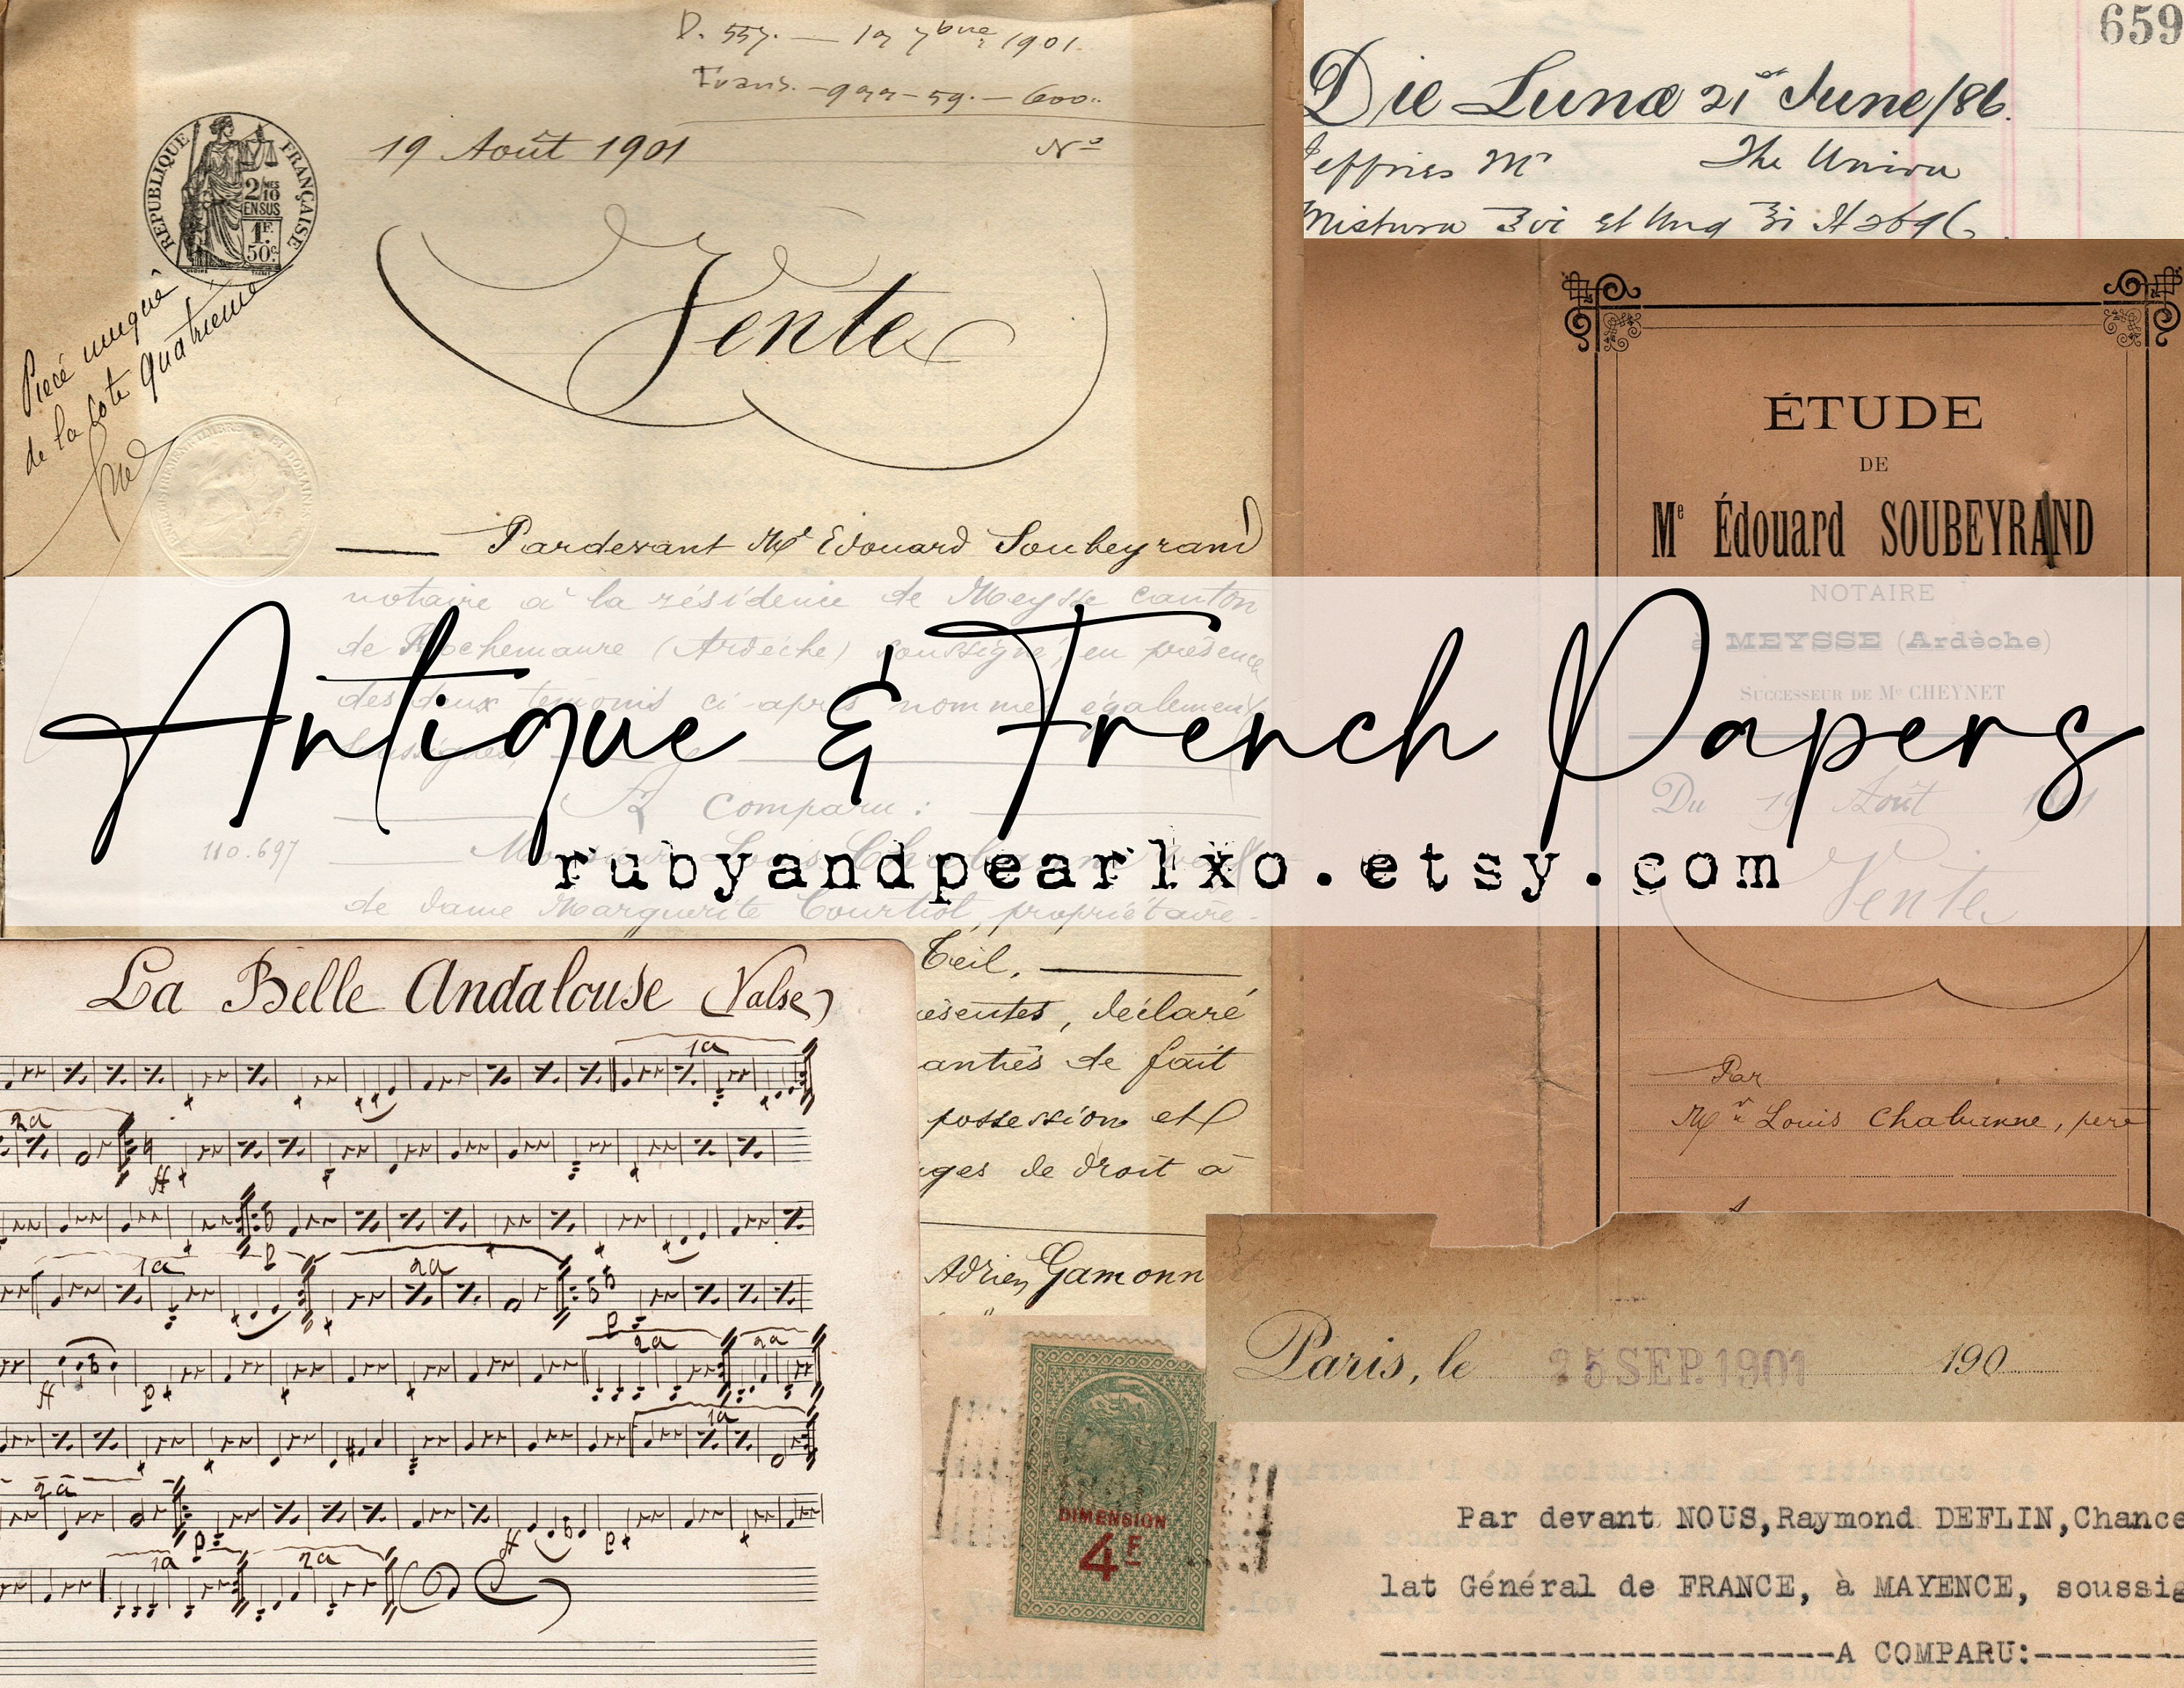 D. 557. — 17 7bre 1901.
19 Août 1901
No
RÉPUBLIQUE FRANÇAISE
2/10
EN SUS
1F.
50c.
Vente
Piece unique
de la cote quatrieme
Pardevant Me Edouard Soubeyrand
notaire à la résidence de Meysse canton
de Rochemaure (Ardèche) soussigné, en présence
des deux temoins ci-après nommés également
soussignés,
A comparu :
110.697
de dame Marguerite propriétaire
Teil.
déclaré
de fait
possession et
de droit à
Adrien Gamonn
659
Die Lunæ 21st June/86.
Jeffries Mr
The
Mistura
ÉTUDE
DE
Me Édouard SOUBEYRAND
NOTAIRE
à MEYSSE (Ardèche)
SUCCESSEUR DE Me CHEYNET
Du 19 Août 1901
Vente
Par
Mr Louis Chabanne, pere
Antique & French Papers
rubyandpearlxo.etsy.com
La Belle Andalouse (Valse)
1a
2a
1a
2a
2a
2a
1a
2a
1a
2a
DIMENSION
4F
Paris, le 25 SEP. 1901 190
Par devant NOUS, Raymond DEFLIN, Chance
lat Général de FRANCE, à MAYENCE, soussig
-----------------------A COMPARU:--------